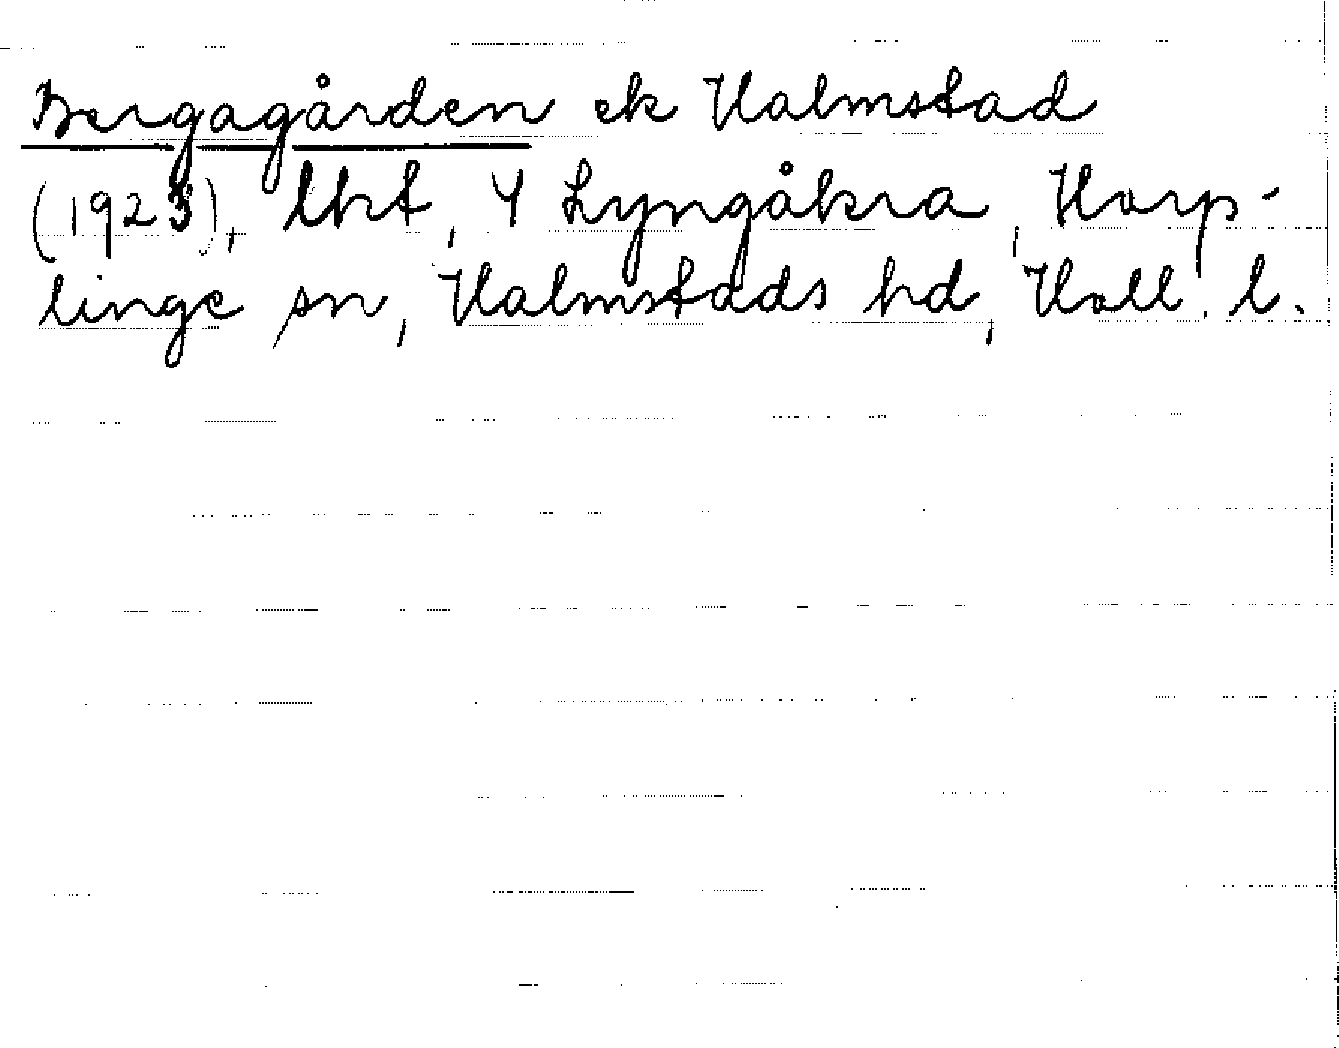 Bergagården ek Halmstad
(1923), lht, 4 Lyngåkra, Harp-
linge sn, Halmstads hd, Hall. l.